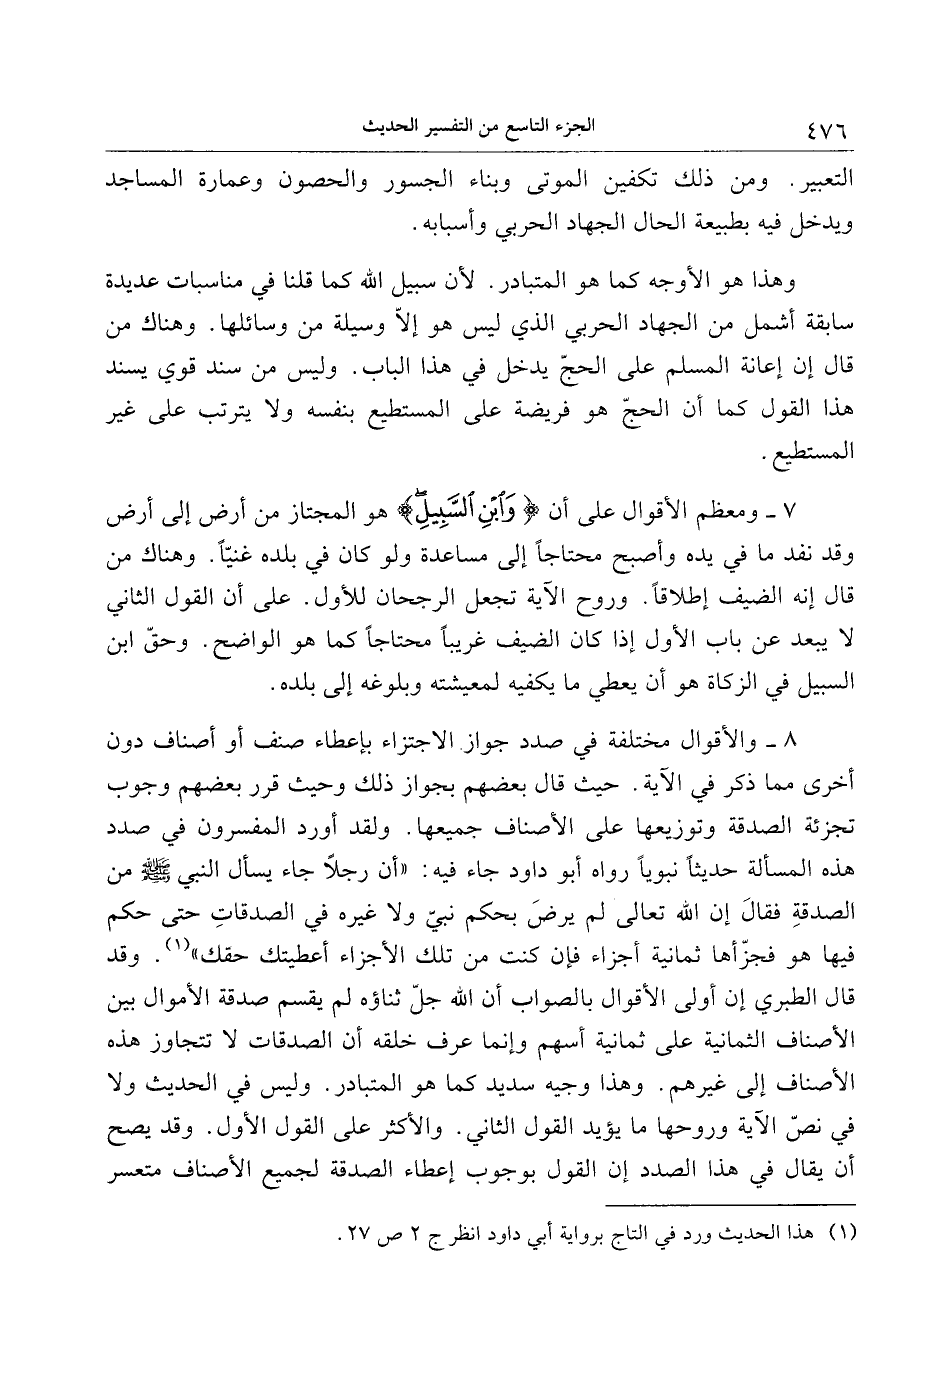 ٤٧٦ الجزء التاسع من التفسير الحديث
التعبير. ومن ذلك تكفين الموتى وبناء الجسور والحصون وعمارة المساجد
ويدخل فيه بطبيعة الحال الجهاد الحربي وأسبابه.
وهذا هو الأوجه كما هو المتبادر. لأن سبيل الله كما قلنا في مناسبات عديدة
سابقة أشمل من الجهاد الحربي الذي ليس هو إلاّ وسيلة من وسائلها. وهناك من
قال إن إعانة المسلم على الحجّ يدخل في هذا الباب. وليس من سند قوي يسند
هذا القول كما أن الحجّ هو فريضة على المستطيع بنفسه ولا يترتب على غير
المستطيع.
٧ ـ ومعظم الأقوال على أن ﴿ وَٱبْنِ ٱلسَّبِيلِۖ﴾ هو المجتاز من أرض إلى أرض
وقد نفد ما في يده وأصبح محتاجاً إلى مساعدة ولو كان في بلده غنيّاً. وهناك من
قال إنه الضيف إطلاقاً. وروح الآية تجعل الرجحان للأول. على أن القول الثاني
لا يبعد عن باب الأول إذا كان الضيف غريباً محتاجاً كما هو الواضح. وحقّ ابن
السبيل في الزكاة هو أن يعطي ما يكفيه لمعيشته وبلوغه إلى بلده.
٨ ـ والأقوال مختلفة في صدد جواز الاجتزاء بإعطاء صنف أو أصناف دون
أخرى مما ذكر في الآية. حيث قال بعضهم بجواز ذلك وحيث قرر بعضهم وجوب
تجزئة الصدقة وتوزيعها على الأصناف جميعها. ولقد أورد المفسرون في صدد
هذه المسألة حديثاً نبوياً رواه أبو داود جاء فيه: «أن رجلاً جاء يسأل النبي ﷺ من
الصدقةِ فقالَ إن الله تعالى لم يرضَ بحكم نبيّ ولا غيره في الصدقاتِ حتى حكم
فيها هو فجزّأها ثمانية أجزاء فإن كنت من تلك الأجزاء أعطيتك حقك»(١). وقد
قال الطبري إن أولى الأقوال بالصواب أن الله جلّ ثناؤه لم يقسم صدقة الأموال بين
الأصناف الثمانية على ثمانية أسهم وإنما عرف خلقه أن الصدقات لا تتجاوز هذه
الأصناف إلى غيرهم. وهذا وجيه سديد كما هو المتبادر. وليس في الحديث ولا
في نصّ الآية وروحها ما يؤيد القول الثاني. والأكثر على القول الأول. وقد يصح
أن يقال في هذا الصدد إن القول بوجوب إعطاء الصدقة لجميع الأصناف متعسر
(١) هذا الحديث ورد في التاج برواية أبي داود انظر ج ٢ ص ٢٧.